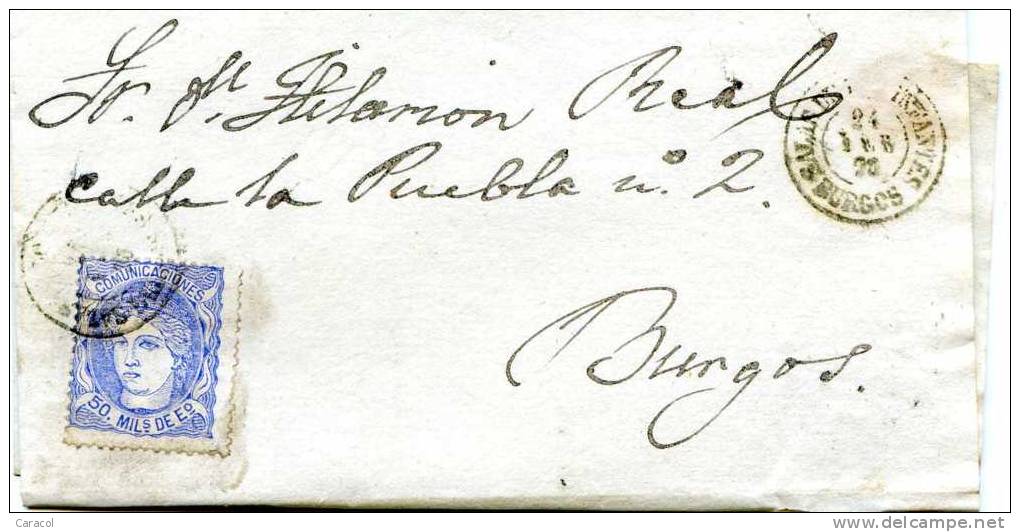 Sr. Dn. Filamon Real
calle la Puebla nº 2.
Burgos.
COMUNICACIONES
50. MILS DE EO
SALA INFANTES
24
70
BURGOS
Caracol
www.delcampe.net